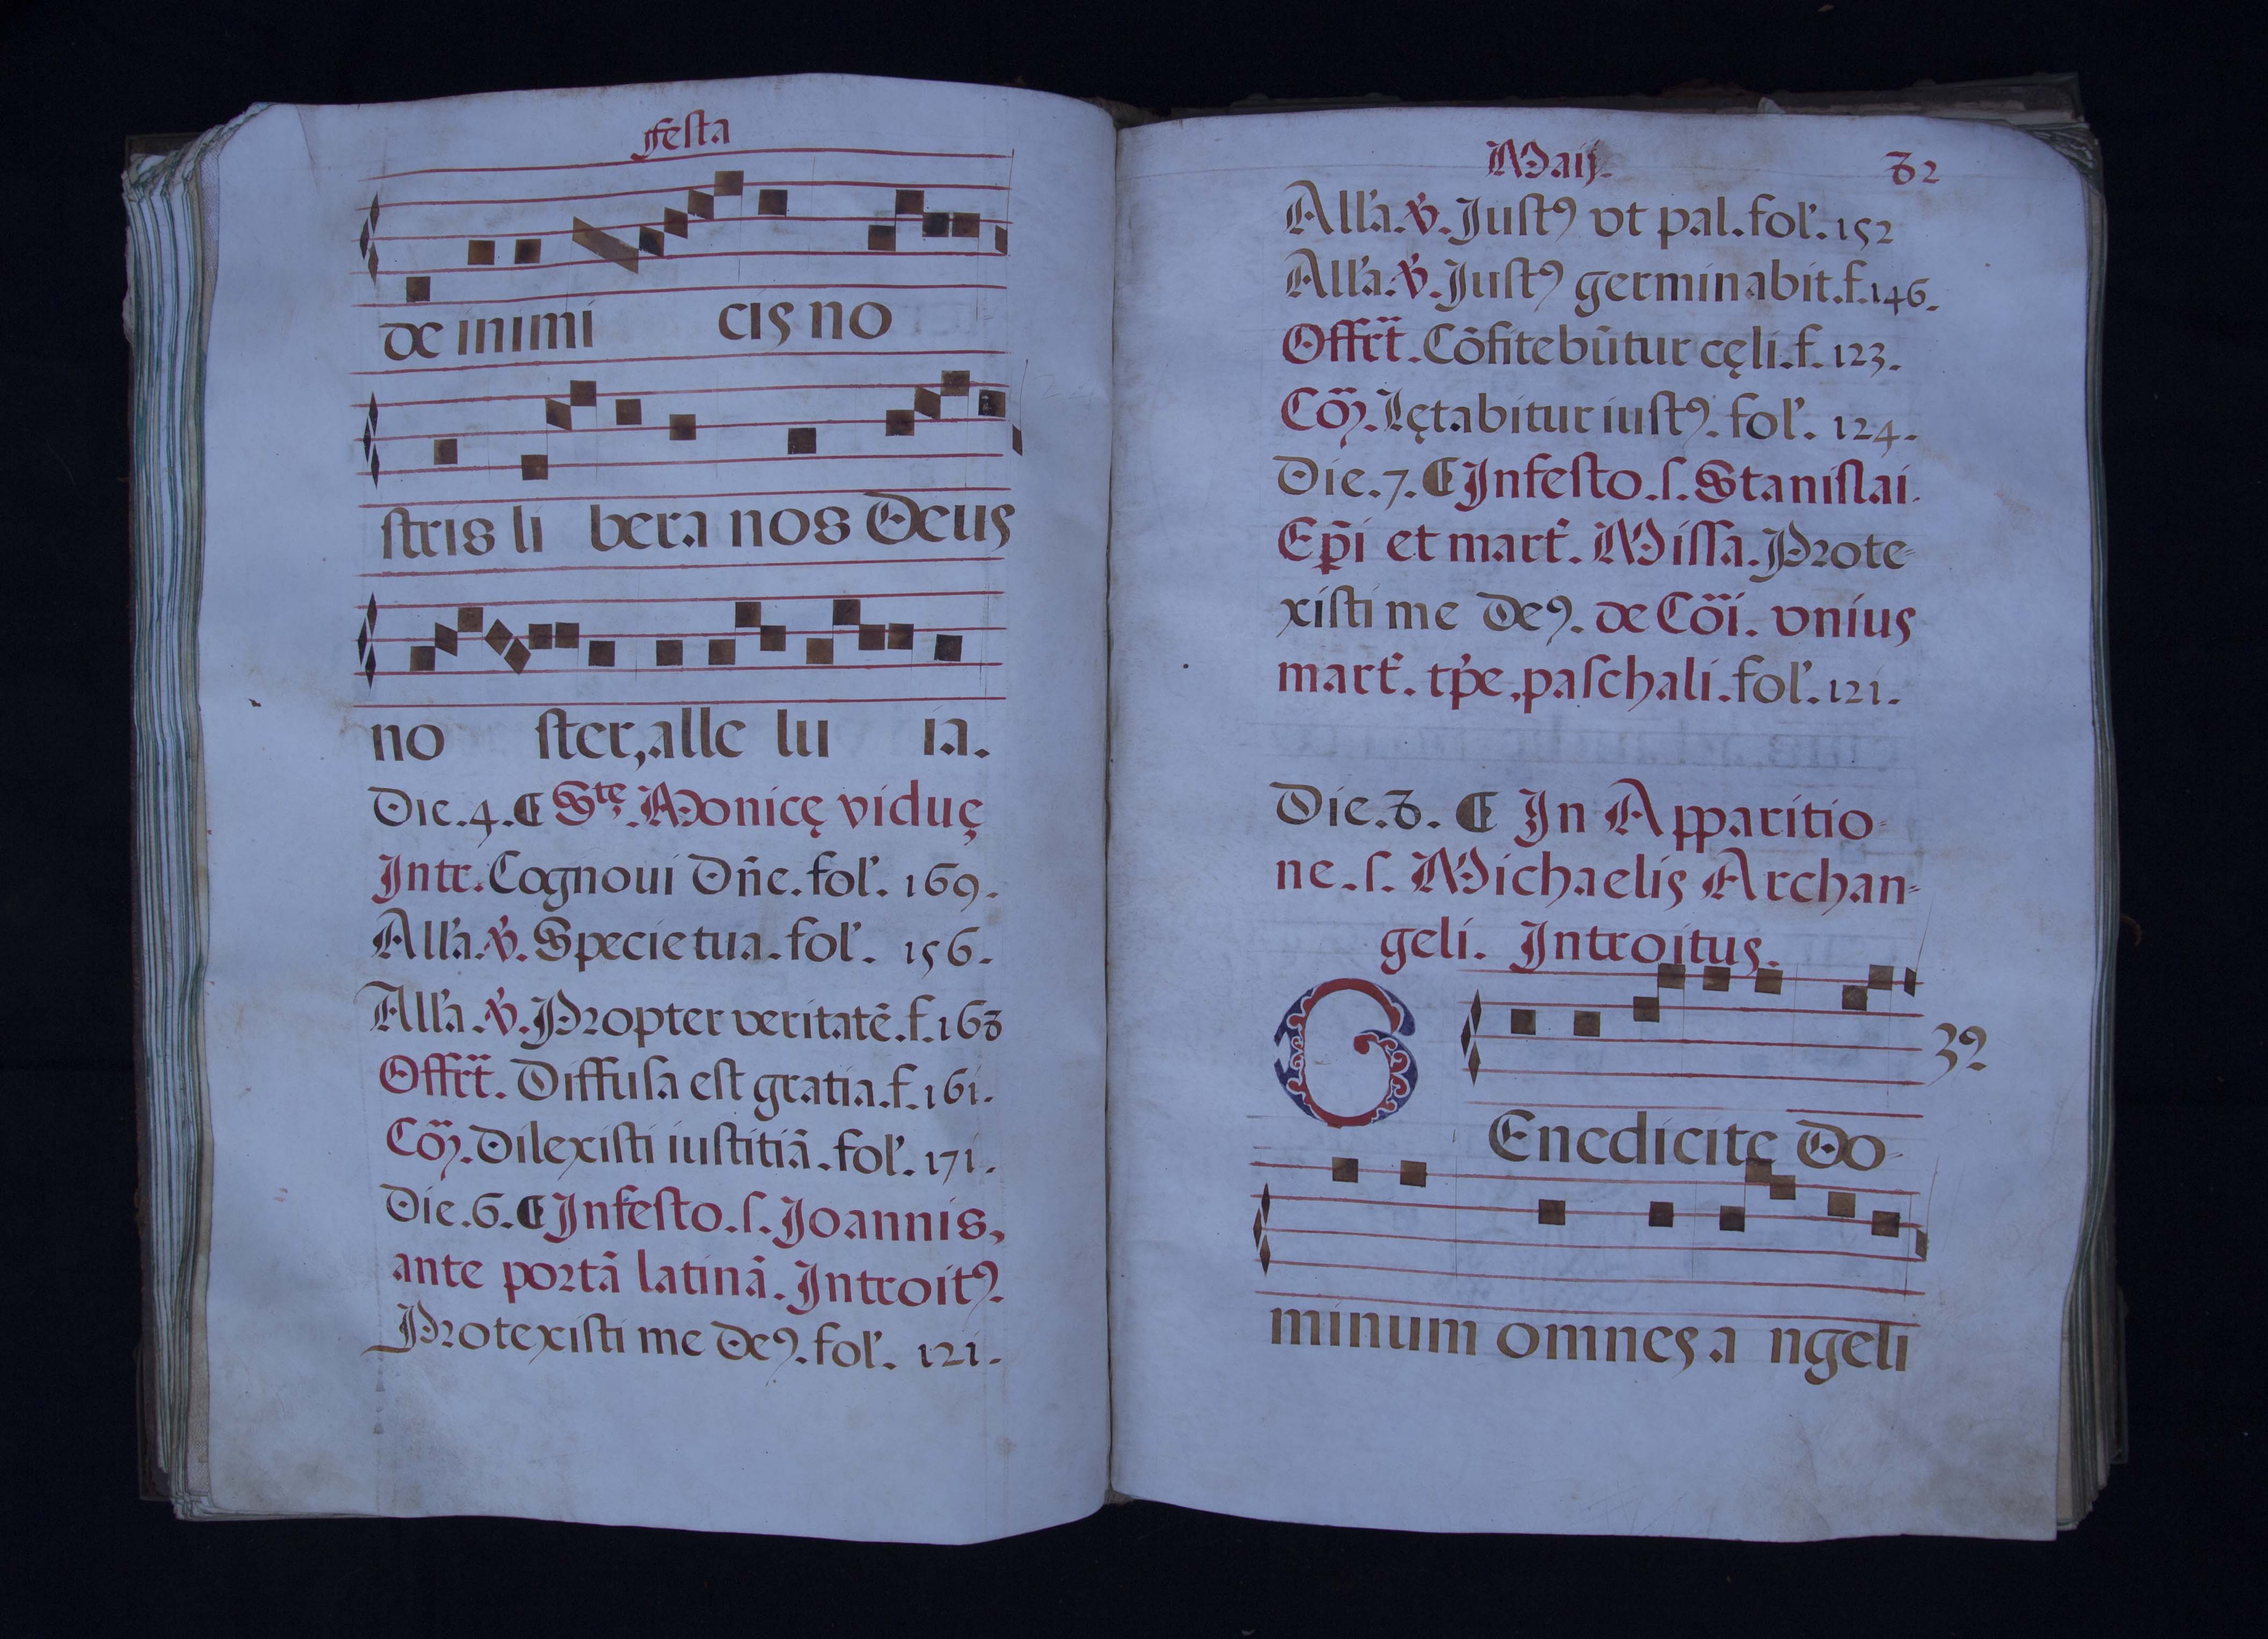 festa
de inimi cis no
stris li bera nos Deus
no ster, alle lu ia.
Die.4.¶ S^tę. Monicę viduę
Intr. Cognoui Dñe. fol'. 169.
All'a. ℣. Specie tua. fol'. 156.
All'a. ℣. Propter veritatẽ. f. 168
Offrt̃. Diffusa est gratia. f. 161.
Cõꝫ. Dilexisti iustitiã. fol'. 171.
Die.6.¶ In festo. s. Joannis,
ante portã latinã. Introitꝰ.
Protexisti me Deꝰ. fol'. 121.
Maij. 82
All'a. ℣. Justꝰ vt pal. fol'. 152
All'a. ℣. Justꝰ germinabit. f. 146.
Offrt̃. Cõfitebũtur cęli. f. 123.
Cõꝫ. Lętabitur iustꝰ. fol'. 124.
Die.7.¶ In festo. s. Stanislai.
Ep̃i et mart̃. Missa. Prote=
xisti me Deꝰ. de Cõi. vnius
mart̃. tp̃e, paschali. fol'. 121.
Die.8. ¶ In Apparitio=
ne. s. Michaelis Archan=
geli. Introitus.
3ꝰ
BEnedicite Do-
minum omnes a ngeli